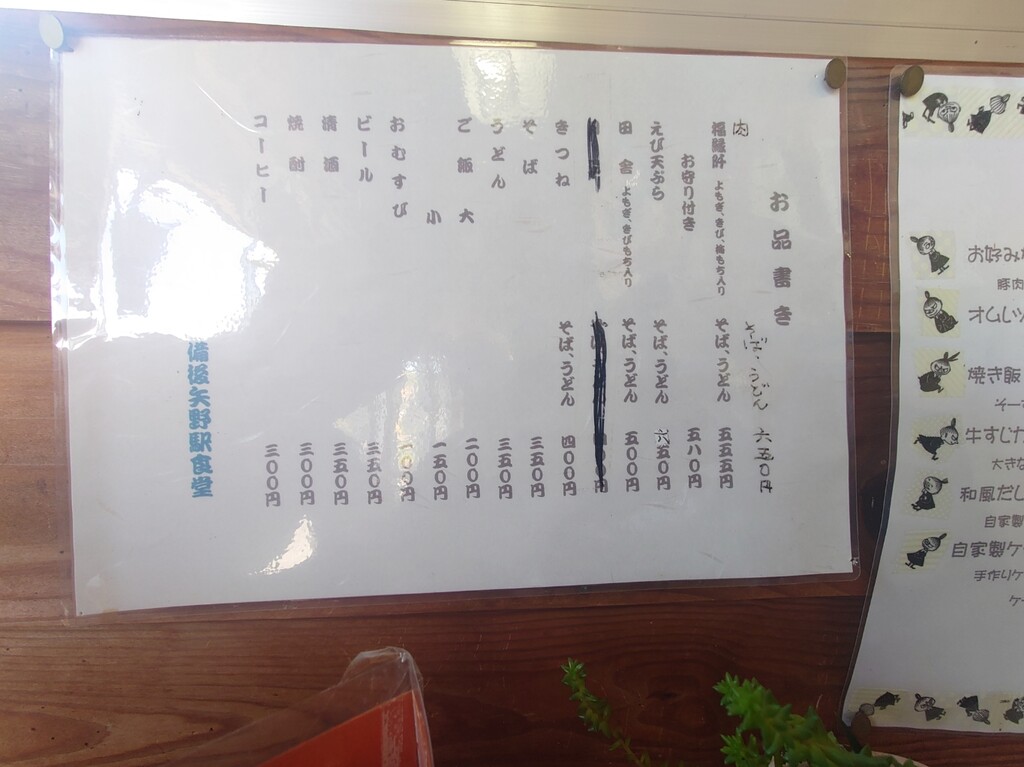 お品書き
肉 そば、うどん 六五〇円
福縁肝 よもぎ、きび、梅もち入り そば、うどん 五五五円
お守り付き 五八〇円
えび天ぷら そば、うどん 六五〇円
田舎 よもぎ、きびもち入り そば、うどん 五〇〇円
きつね そば、うどん 四〇〇円
そば 三五〇円
うどん 三五〇円
ご飯 大 二〇〇円
小 一五〇円
おむすび 一〇〇円
ビール 三五〇円
清酒 三五〇円
焼酎 三〇〇円
コーヒー 三〇〇円
備後矢野駅食堂
お好み
豚肉
オムレツ
焼き飯
そー
牛すじ
大きな
和風だし
自家製
自家製ケ
手作りケ
ケー